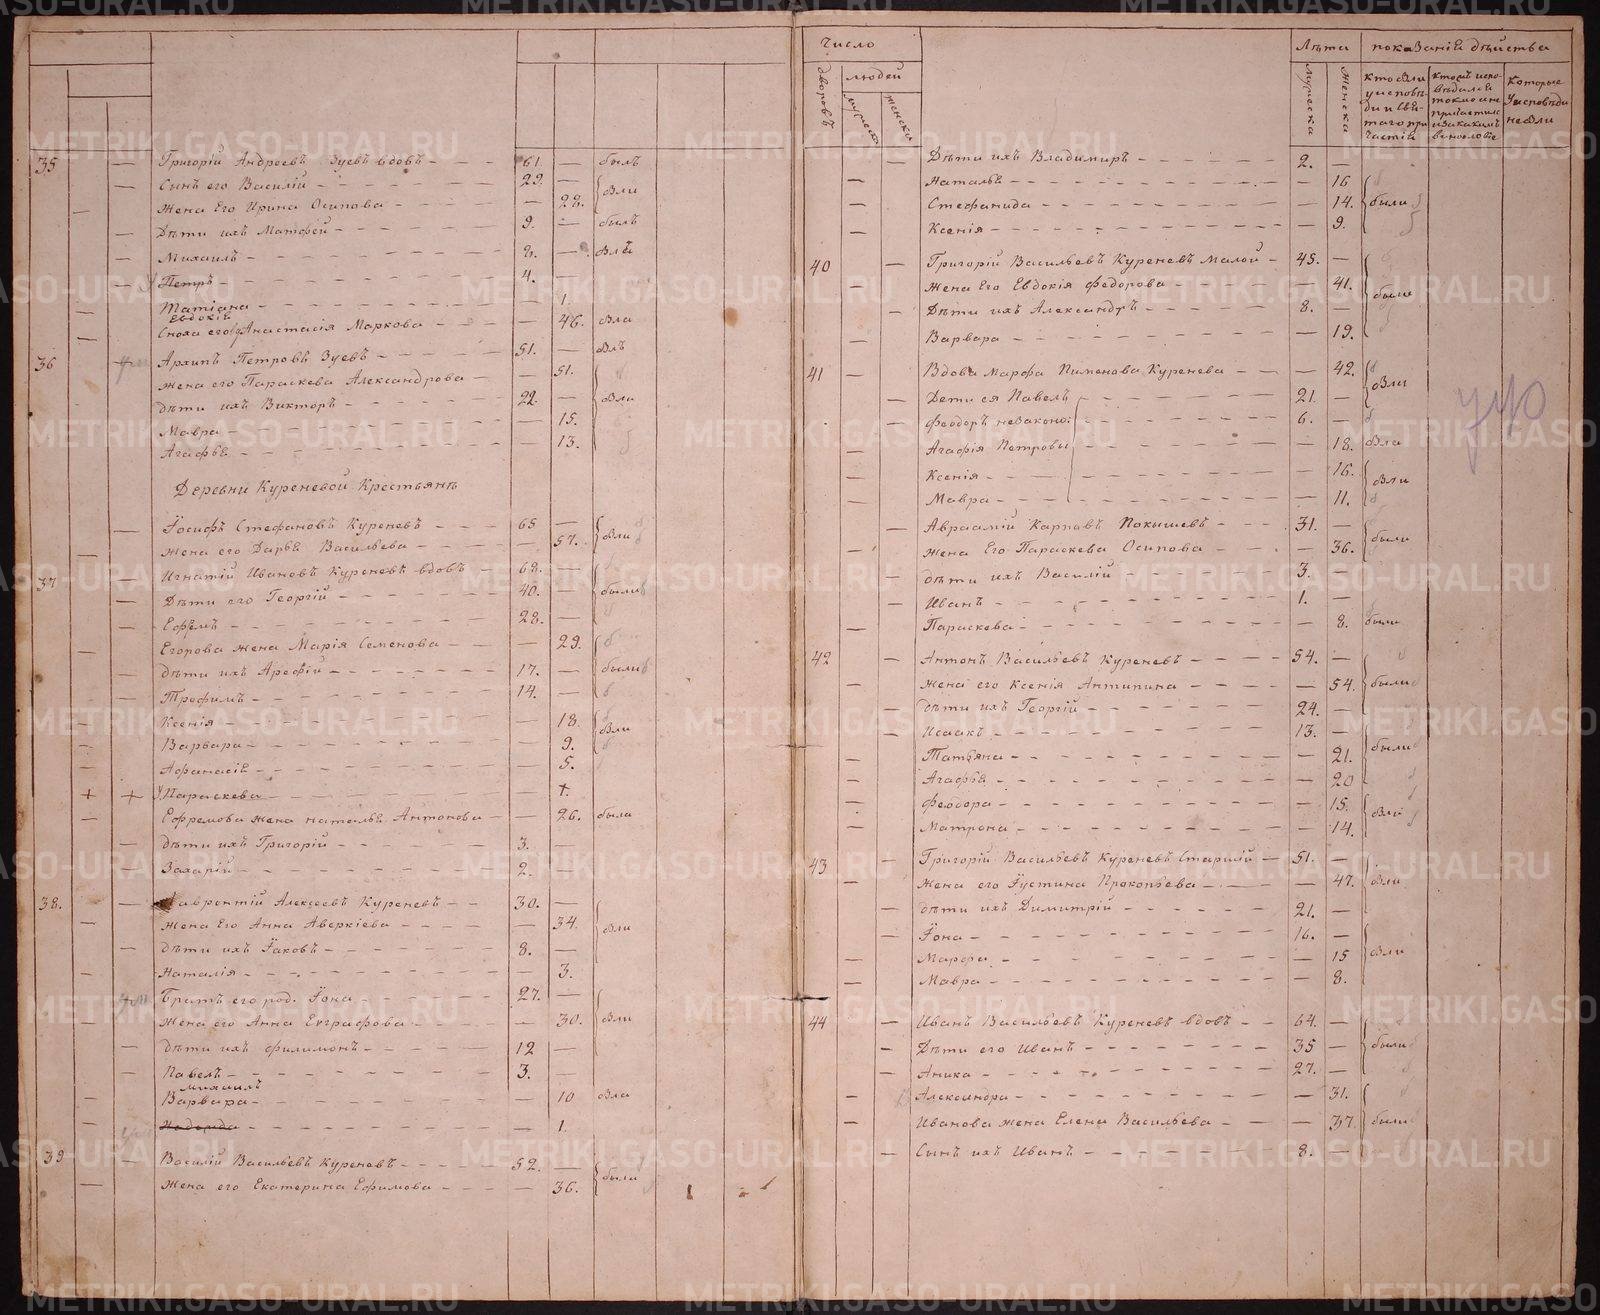 35 — Григорій Андреевъ Зуевъ вдовъ — 61. — былъ
— Сынъ его Василій — 29. — бли
— Жена Его Ирина Осипова — 28.
— Дѣти ихъ Матфей — 9. — былъ
— Михаилъ — 8. —
— Петръ — 4. —
— Татіана — 1.
Евдокія
— Сноха его Анастасія Маркова — 46. бла
36 Архипъ Петровъ Зуевъ — 51. — блъ
жена его Параскева Александрова — 51.
дѣти ихъ Викторъ — 22. — бли
Мавра — 15.
Агафья — 13.
Деревни Куреневой Крестьянъ
— Іосифъ Стефановъ Куреневъ — 65 — бли
— жена его Дарья Васильева — 57.
37 — Игнатій Ивановъ Куреневъ вдовъ — 68. —
— Дѣти его Георгій — 40. — были
— Ефремъ — 28. —
— Егорова жена Марія Семенова — 29.
— дѣти ихъ Арефій — 17. — были
— Трофимъ — 14. —
— Ксенія — 18. бли
— Варвара — 9.
— Афанасія — 5.
+ + Параскева — +.
— Ефремова жена наталья Антонова — 26. была
— дѣти ихъ Григорій — 3. —
— Захарій — 2. —
38. — Лаврентій Алексеевъ Куреневъ — 30. —
— жена Его Анна Аверкіева — 34. бли
— дѣти ихъ Іаковъ — 8. —
— Наталія — 3.
Братъ его род. Іона — 27. —
— Жена его Анна Евграфова — 30. бли
— дѣти ихъ филимонъ — 12 —
— Павелъ — 3. —
михаилъ
— Варвара — 10 бла
— Надежда — 1.
39 — Василій Васильевъ Куреневъ — 52. — были
— Жена его Екатерина Ефимова — 36.
Число Лѣта показаніе дѣйства
дворовъ людей мужеска женска
мужеска женска
Которые Уисповѣди небыли
— Дѣти ихъ Владимиръ — 2. —
— Наталья — 16
— Стефанида — 14. были
— Ксенія — 9.
40 — Григорій Васильевъ Куреневъ Малой — 45. —
— жена Его Евдокія Федорова — 41. были
— Дѣти ихъ Александръ — 8. —
— Варвара — 19.
41 — Вдова Марфа Пименова Куренева — 42. бли
— Дети ея Павелъ — 21. —
— Феодоръ незакон: — 6. —
— Агафія Петровы — 18. бла
— Ксенія — 16. бли
— Мавра — 11.
— Авраамій Карповъ Покышевъ — 31. — были
— жена Его Параскева Осипова — 36.
— дѣти ихъ Василій — 3. —
— Иванъ — 1. —
— Параскева — 8. были
42 — Антонъ Васильевъ Куреневъ — 54. —
— жена его Ксенія Антипина — 54. были
— дѣти ихъ Георгій — 24. —
— Исаакъ — 13. —
— Татьяна — 21. были
— Агафья — 20
— Феодора — 15. бли
— Матрона — 14.
43 — Григорій Васильевъ Куреневъ Старшій — 51. —
— жена его Іустина Прокопьева — 47. бли
— дѣти ихъ Димитрій — 21. —
— Іона — 16. —
— Марфа — 15 бли
— Мавра — 8.
44 — Иванъ Васильевъ Куреневъ вдовъ — 64. —
— Дѣти его Иванъ — 35 — были
— Аника — 27. —
— Александра — 31.
— Иванова жена Елена Васильева — 37. были
— Сынъ ихъ Иванъ — 8. —
METRIKI.GASO-URAL.RU